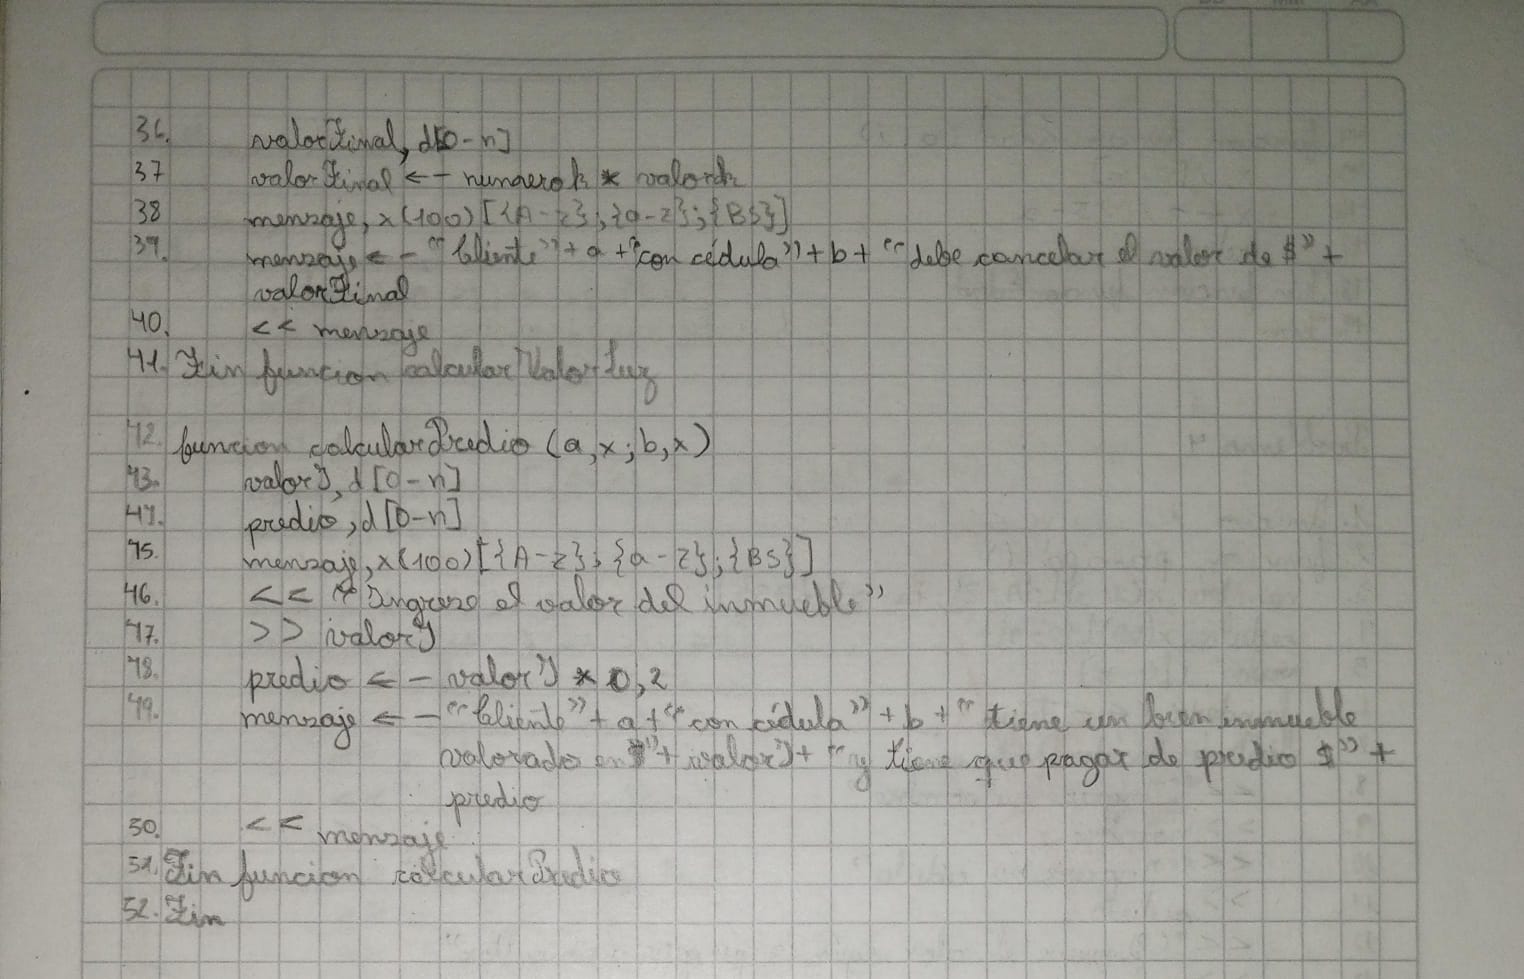 36. valorFinal, d[0-n]
37 valorFinal <- numerok * valork
38 mensaje, x(100)[{A-z};{a-z};{BS}]
39. mensaje <- "Cliente"+a+"con cédula"+b+"debe cancelar el valor de $"+
valorFinal
40. << mensaje
41. Fin funcion calcularValorLuz
42. funcion calcularPredio (a,x;b,x)
43. valorI, d[0-n]
44. predio, d[0-n]
45. mensaje, x(100)[{A-z};{a-z};{BS}]
46. << "Ingrese el valor del inmueble"
47. >> valorI
48. predio <- valorI * 0,2
49. mensaje <- "Cliente"+a+"con cédula"+b+"tiene un bien inmueble
valorado en $"+valorI+"y tiene que pagar de predio $"+
predio
50. << mensaje
51. Fin funcion calcularPredio
52. Fin